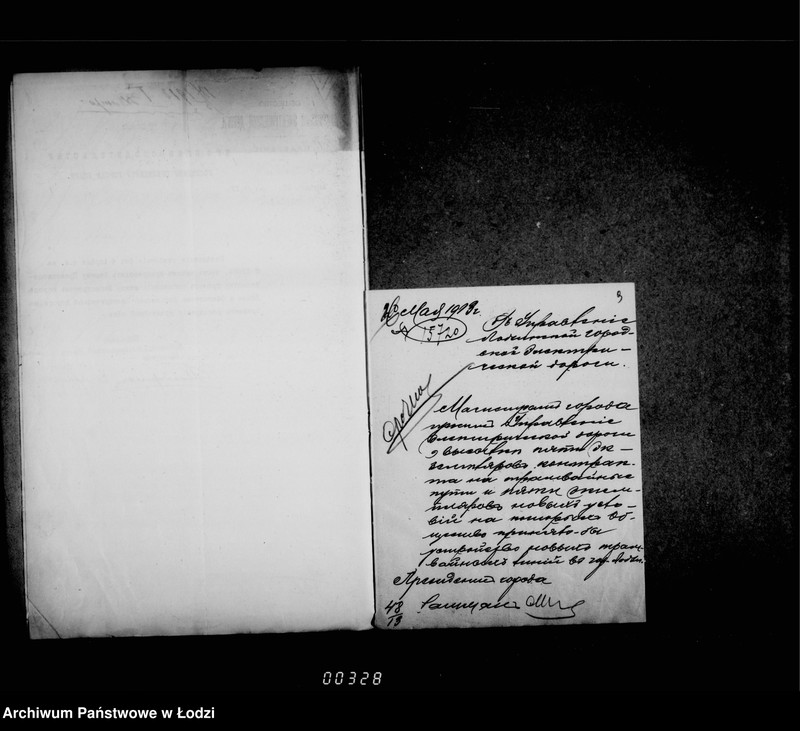 9
Мая 1913 г.
№ 15720
Въ Управленіе
Лодзинской город-
ской электри-
ческой дороги.
Срочно
Магистратъ города
проситъ Управленіе
электрической дороги
о высылкѣ пяти эк-
земпляровъ контрак-
та на трамвайные
пути и пяти экзем-
пляровъ новыхъ усло-
вій на которыхъ об-
щество приняло-бы
устройство новыхъ трам-
вайныхъ линій въ гор. Лодзи.
Президентъ города
48
13
00328
Archiwum Państwowe w Łodzi